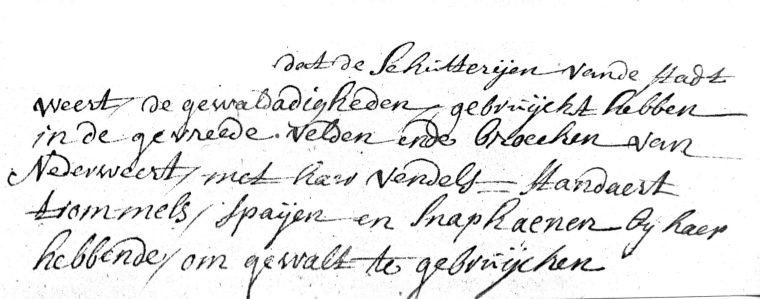 dat de Schutterijen vande stadt
weert, de gewaldadigheden, gebruijckt hebben
in de gevreede velden ende broecken van
Nederweert, met haer vendels = standaert
trommels, spaijen en snaphaenen bij haer
hebbende, om gewalt te gebruijcken